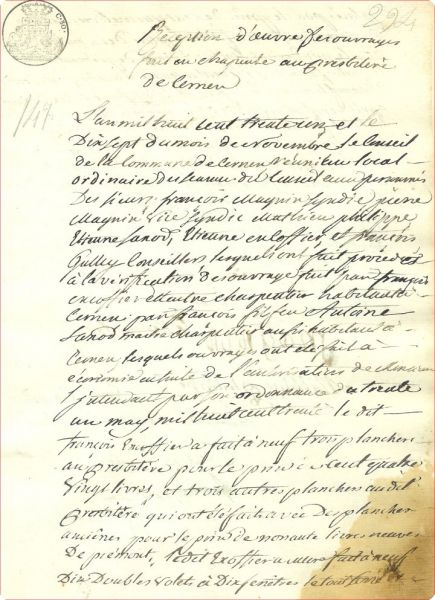 294
Réception d'œuvre des ouvrages
fait en charpente au presbitère
de Cernex
L'an mil huit cent trente un et le
Dix sept du mois de Novembre le Conseil
de la Commune de Cernex réuni au local
ordinaire des séances du Conseil aux personnes
Des sieurs françois Magnin syndic pierre
Magnin vice syndic Mathieu philippe
Etienne Sanod, Etienne encoffier, et françois
Gulley Conseillers lesquels ont fait procéder
à la vérification des ouvrage fait par françois
encoffier maitre charpentier habitant à
Cernex par françois feu Antoine
Sanod maitre charpentier aussi habitant à
Cernex lesquels ouvrages ont été fait à
économie en suite de l'autorisation de
l'intendant par son ordonnance du trente
un may, mil huit cent trente le dit
françois Encoffier a fait à neuf trois planchers
au presbitère pour le prix de cent quatre
vingt livres, et trois autres planchers au dit
Presbitère qui ont été fait avec des plancher
anciènes pour le prix de nonante livres neuves
de piémont, le dit Encoffier a encore fait à neuf
Dix Doubles volets à Dix fenêtres le tout